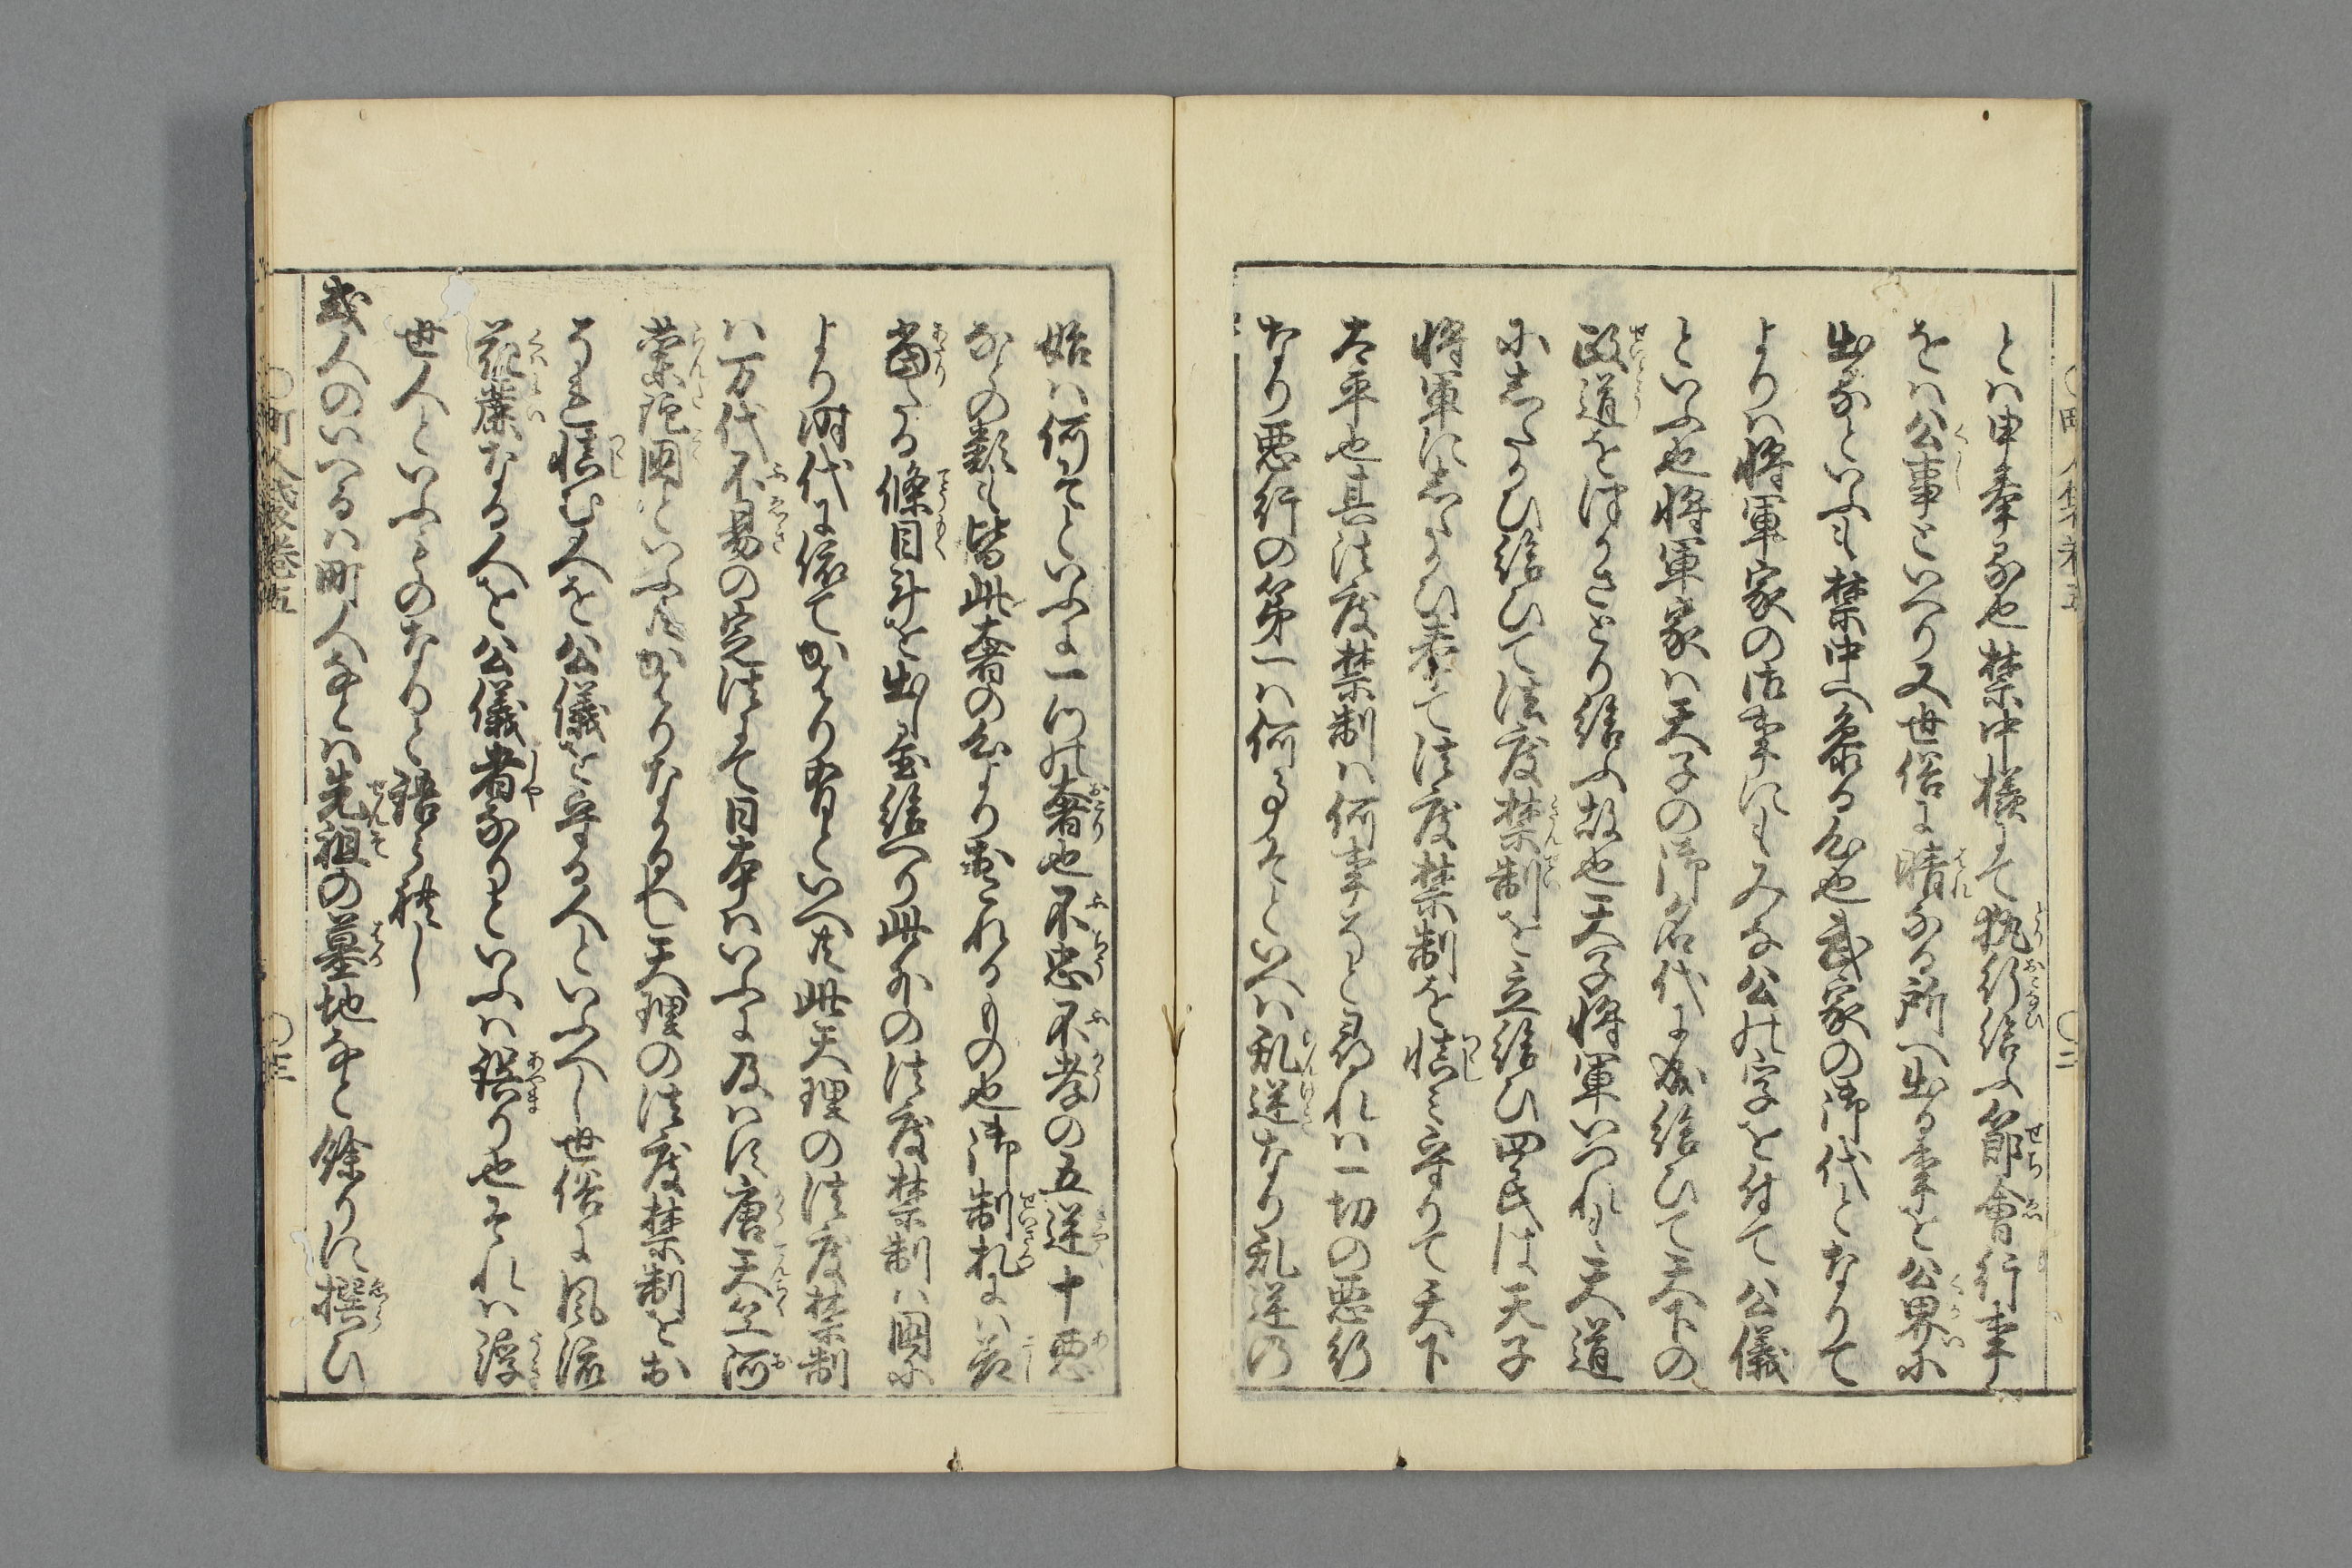 とは申奉る也禁中様にて執行給ふ節會行事
をは公事といへり又世俗に晴なる所へ出る事を公界に
出るといふも禁中へ参る心也武家の御代となりて
よりは将軍家の御事にもみな公の字を付て公儀
といふ也将軍家は天子の御名代に成給ひて天下の
政道をつかさとり給ふ故也天子将軍いつれも天道
にしたかひ給ひて法度禁制を立給ひ四民は天子
将軍にしたかひ奉て法度禁制を慎み守りて天下
太平也其法度禁制は何事そと尋れは一切の悪行
なり悪行の第一は何事そといへは乱逆なり乱逆の
始は何そといふに一つの奢也不忠不孝の五逆十悪
なとの類も皆此奢の心より出されるもの也御制札には
當る條目斗を出し給へり此外の法度禁制は國に
より時代に依てかはり有といへ共此天理の法度禁制
は万代不易の定法にて日本はいふに及はす唐天竺阿
蘭陀国といふ共かはりなるへし天理の法度禁制をお
それ慎む人を公儀を守る人といふへし世俗に風流
花麗なる人を公儀者なりといふは誤り也それは浮
世人といふものなりと語られし
或人のいへるは町人なとは先祖の墓地なと餘りに撰ひ
町人嚢巻五
三
二